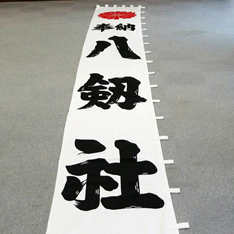 奉納
八剱社